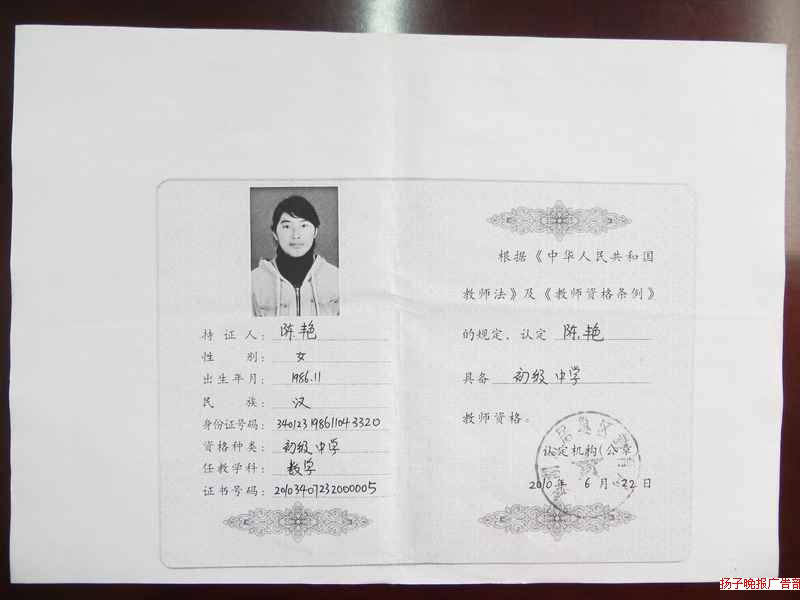 持 证 人： 陈艳
性 别： 女
出生年月： 1986.11
民 族： 汉
身份证号码： 340123198611043320
资格种类： 初级中学
任教学科： 数学
证书号码： 20103407232000005
根据《中华人民共和国
教师法》及《教师资格条例》
的规定，认定 陈艳
具备 初级中学
教师资格。
认定机构（公章
2010 年 6 月 22 日
扬子晚报广告部